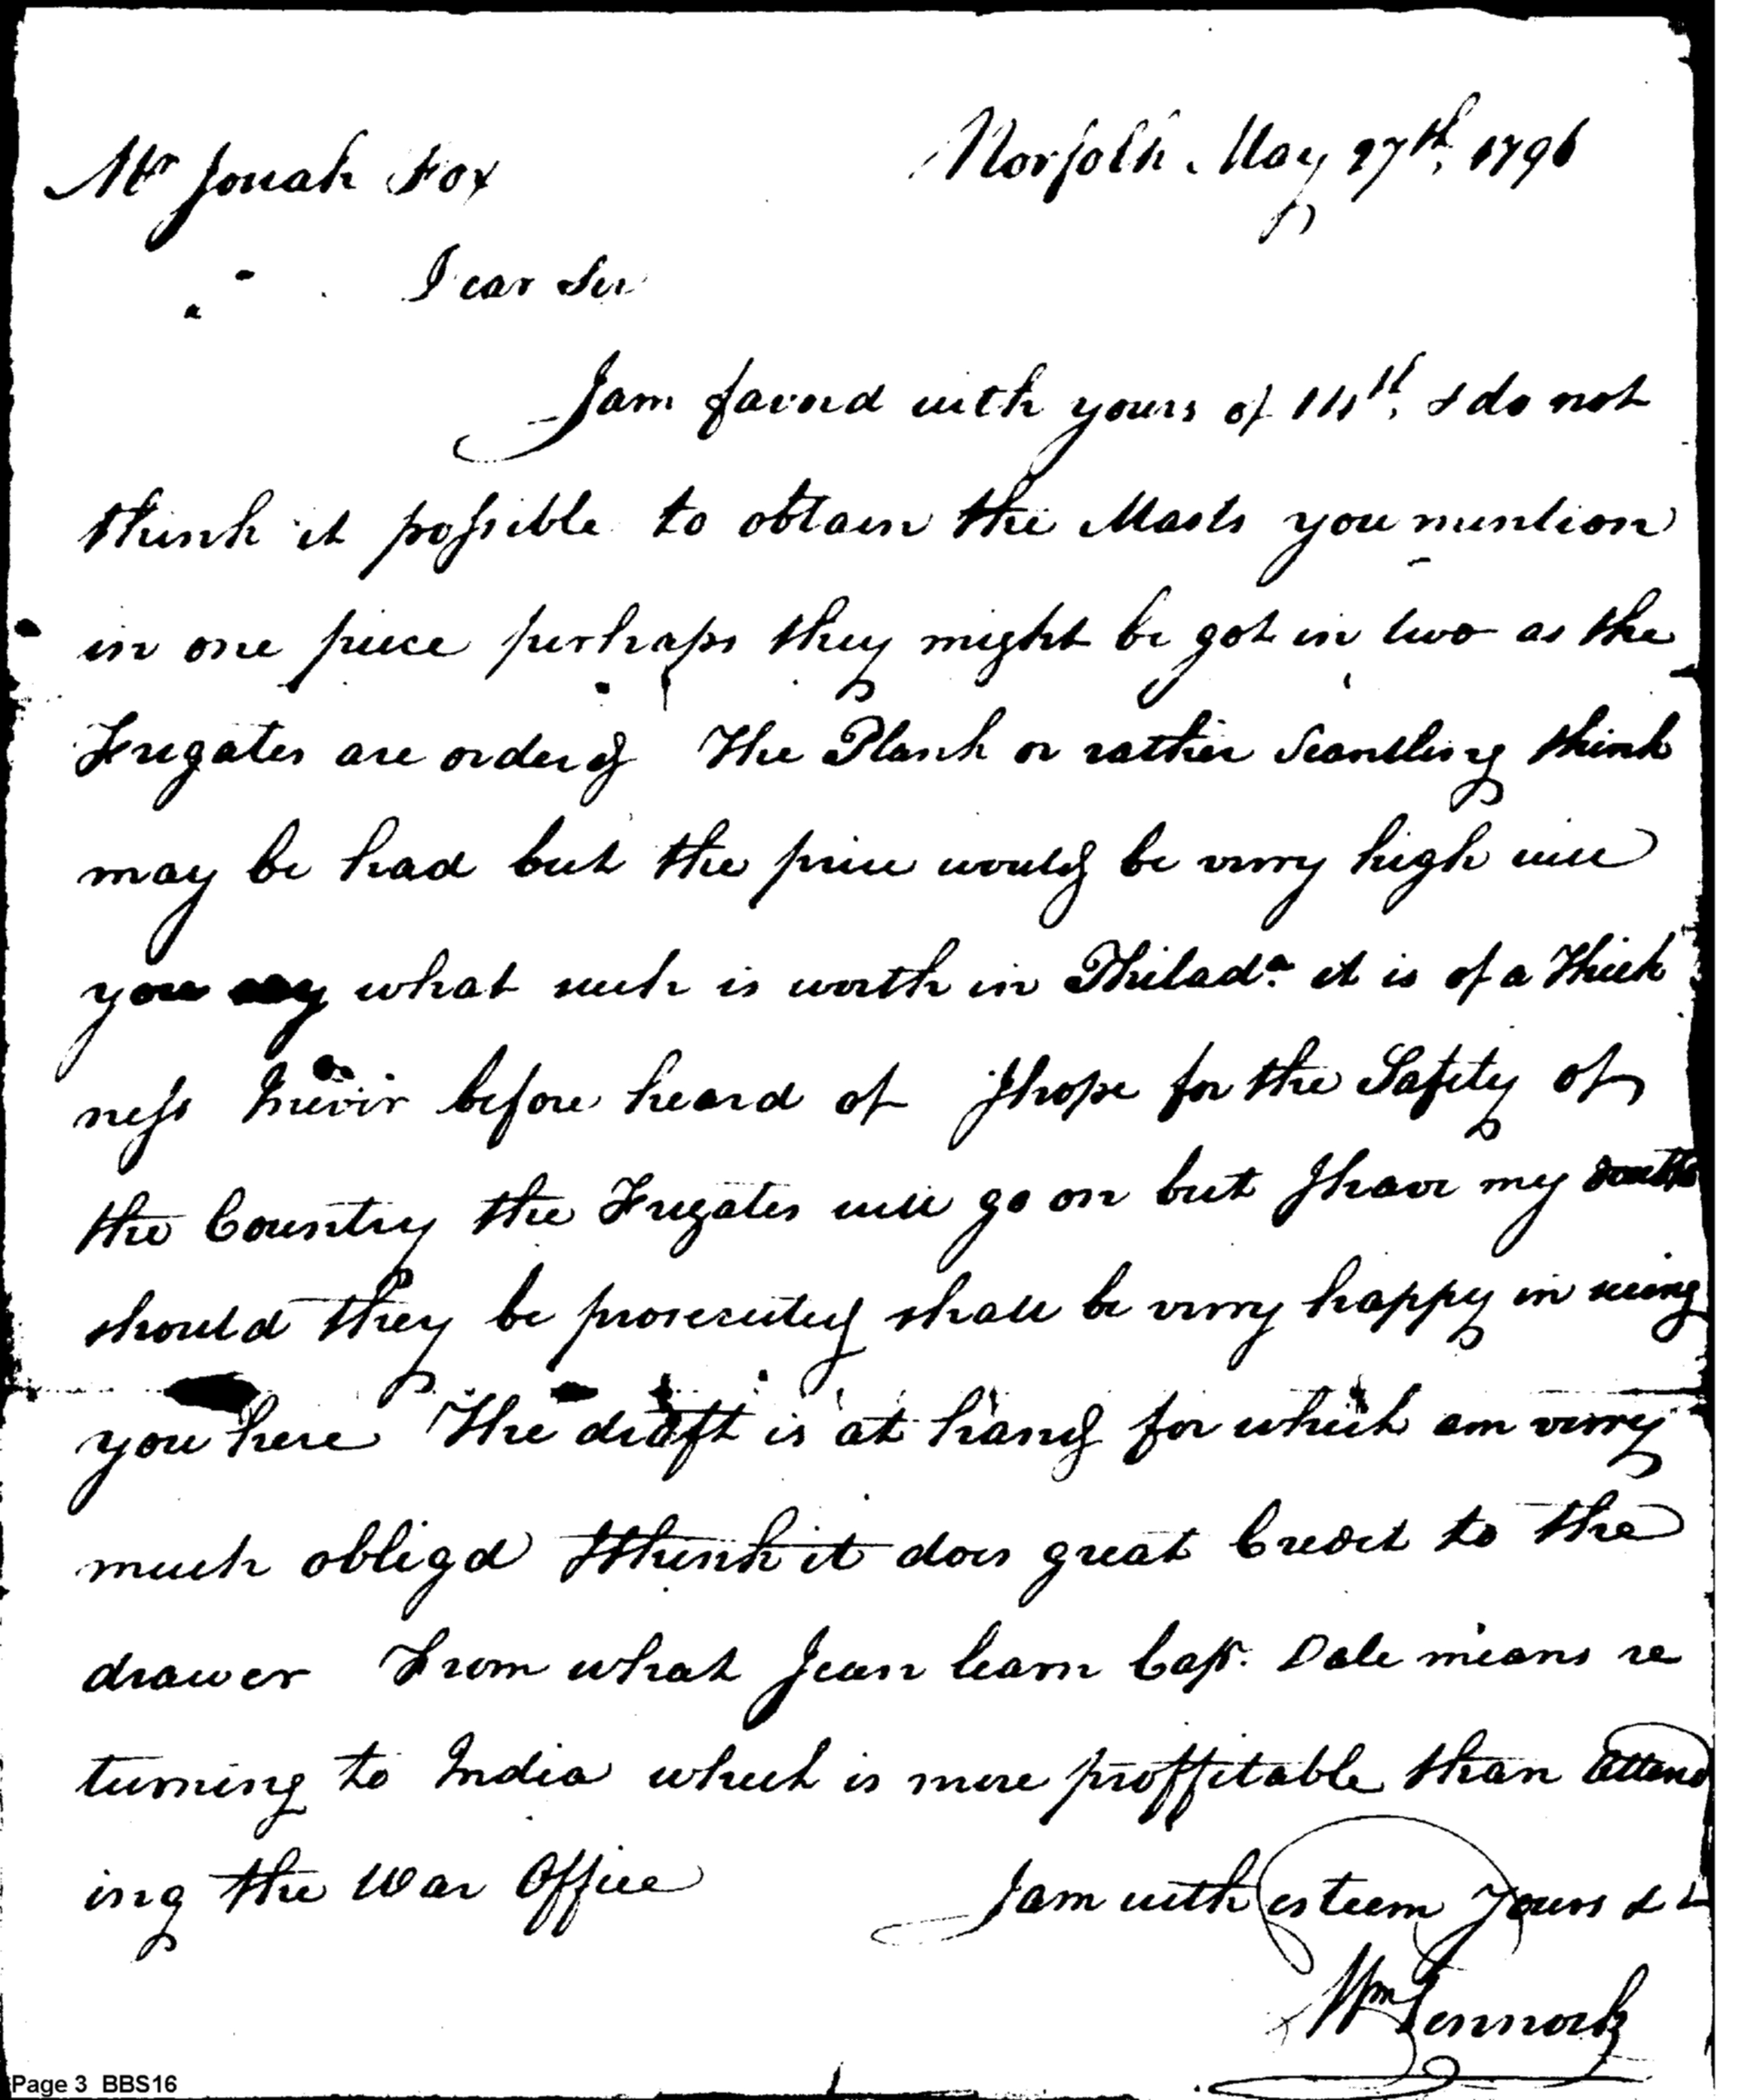 Norfolk May 27th, 1796
Mr Josiah Fox
Dear Sir
I am favord with yours of 14th, I do not
think it possible to obtain the Masts you mention
in one piece perhaps they might be got in two as the
Frigates are orderd The Plank or rather Scantling think
may be had but the price would be verry high will
you say what such is worth in Philada. it is of a thick
ness I never before heard of I hope for the Safety of
the Country the Frigates will go on but I have my doubts
should they be prosecuted shall be verry happy in seeing
you here The draft is at hand for which am verry
much obligd I think it does great Credit to the
drawer From what I can learn Capt. Dale means re
turning to India which is more proffitable than attend
ing the War Office
I am with esteem Yours &c
Wm Pennock
Page 3 BBS16